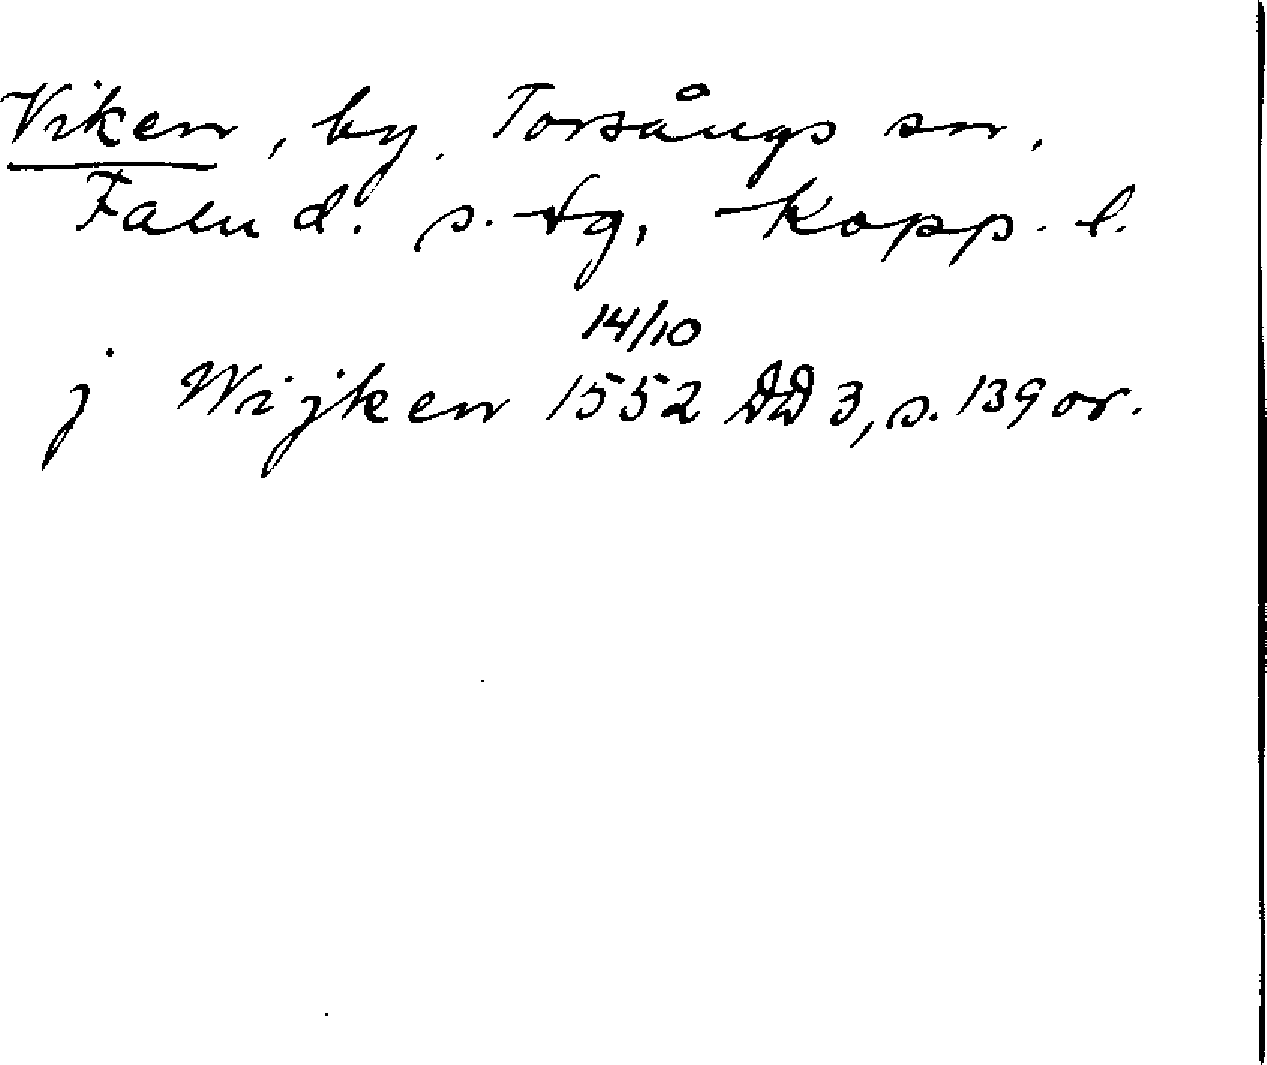 Viken, by. Torsångs sn.
Falu d. s. tg, Kopp. l.
14/10
j Wijken 1552 DD 3, s. 139 or.